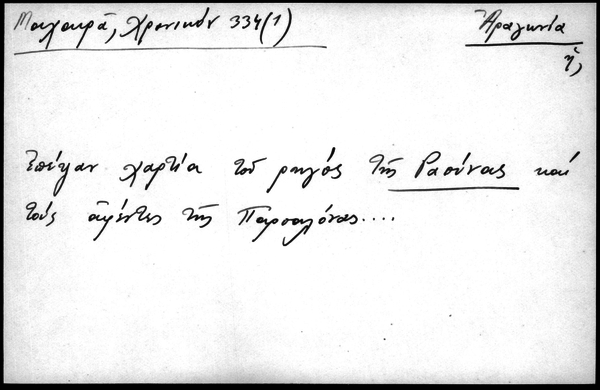 Μαχαιρᾶ, Χρονικόν 334(1)
Ἀραγωνία
ἡ,
ἐπέψαν χαρτία τοῦ ρηγὸς τῆς Ραούνας καί
τούς ἀφέντες τῆς Παρσαλόνας....